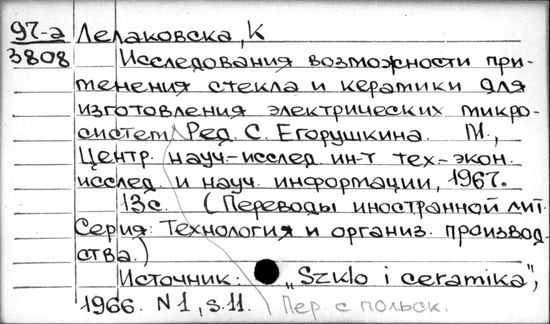 97-а Лелаковска, К
3808 Исследования возможности при-
менения стекла и керамики для
изготовления электрических микро-
систем. Ред. С. Егорушкина. М.,
Центр. науч-исслед. ин-т тех-экон.
исслед. и науч. информации, 1967.
13с. (Переводы иностранной лит.
Серия: Технология и организ. производ-
ства.)
Источник: „Szklo i ceramika",
1966. N1, s.11. Пер. с польск.